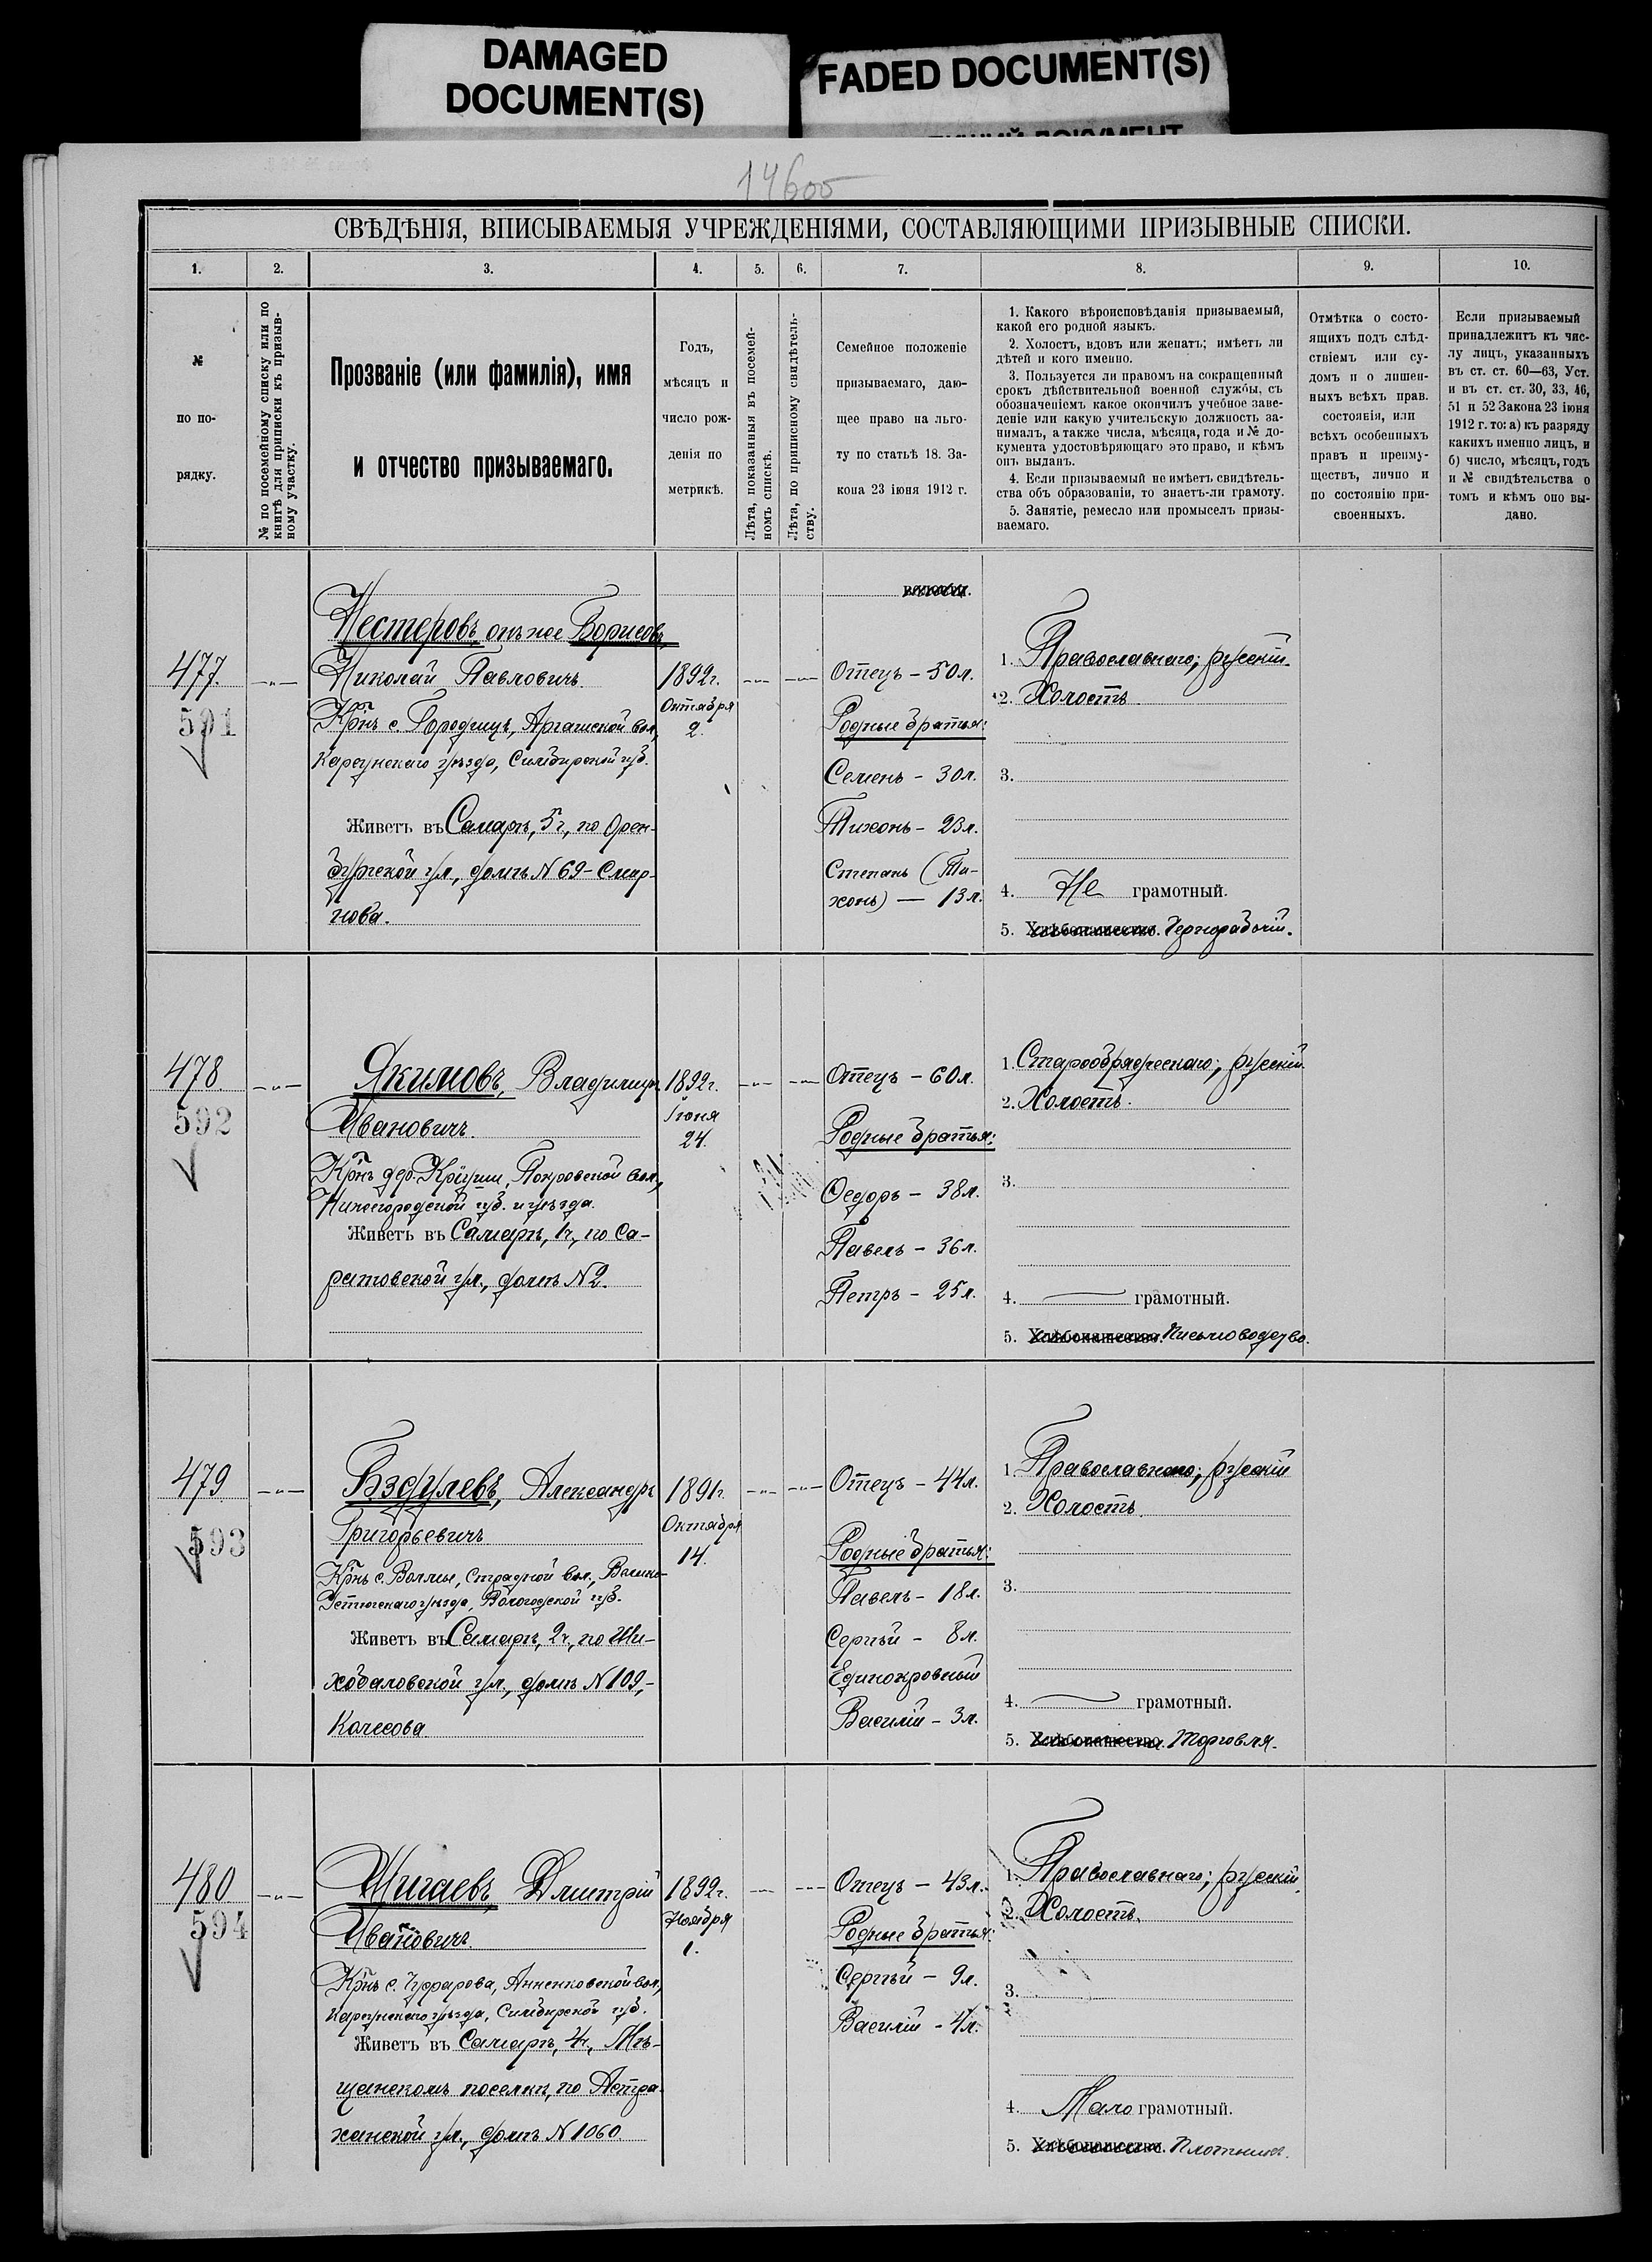 DAMAGED
DOCUMENT(S)
FADED DOCUMENT(S)
14605
СВѢДѢНІЯ, ВПИСЫВАЕМЫЯ УЧРЕЖДЕНІЯМИ, СОСТАВЛЯЮЩИМИ ПРИЗЫВНЫЕ СПИСКИ.
1. 2. 3. 4. 5. 6. 7. 8. 9. 10.
№
по по-
рядку.
№ по посемейному списку или по
книгѣ для приписки къ призыв-
ному участку.
Прозваніе (или фамилія), имя
и отчество призываемаго.
Годъ,
мѣсяцъ и
число рож-
денія по
метрикѣ.
Лѣта, показанныя въ посемей-
номъ спискѣ.
Лѣта, по приписному свидѣтель-
ству.
Семейное положеніе
призываемаго, даю-
щее право на льго-
ту по статьѣ 18. За-
кона 23 іюня 1912 г.
1. Какого вѣроисповѣданія призываемый,
какой его родной языкъ.
2. Холостъ, вдовъ или женатъ; имѣетъ ли
дѣтей и кого именно.
3. Пользуется ли правомъ на сокращенный
срокъ дѣйствительной военной службы, съ
обозначеніемъ какое окончилъ учебное заве-
деніе или какую учительскую должность за-
нималъ, а также числа, мѣсяца, года и № до-
кумента удостовѣряющаго это право, и кѣмъ
онъ выданъ.
4. Если призываемый не имѣетъ свидѣтель-
ства объ образованіи, то знаетъ-ли грамоту.
5. Занятіе, ремесло или промыселъ призы-
ваемаго.
Отмѣтка о состо-
ящихъ подъ слѣд-
ствіемъ или су-
домъ и о лишен-
ныхъ всѣхъ прав.
состоянія, или
всѣхъ особенныхъ
правъ и преиму-
ществъ, лично и
по состоянію при-
своенныхъ.
Если призываемый
принадлежитъ къ чис-
лу лицъ, указанныхъ
въ ст. ст. 60—63, Уст.
и въ ст. ст. 30, 33, 46,
51 и 52 Закона 23 іюня
1912 г. то: а) къ разряду
какихъ именно лицъ, и
б) число, мѣсяцъ, годъ
и № свидѣтельства о
томъ и кѣмъ оно вы-
дано.
477.
591
Нестеровъ, онъ же Борисовъ,
Николай Павловичъ.
Крнъ с. Городищъ, Аргашской вол.,
Карсунскаго уѣзда, Симбирской губ.
Живетъ въ Самарѣ, 5ч., по Орен-
бургской ул., домъ N 69 - Смир-
нова.
1892г.
Октября
2.
Отецъ - 50 л.
Родные братья:
Семенъ - 30 л.
Тихонъ - 23 л.
Степанъ (Ти-
хонъ) — 13 л.
1. Православнаго; русскій.
2. Холостъ.
3.
4. Не грамотный.
5. Хлѣбопашество. Чернорабочій.
478
592
Якимовъ, Владиміръ
Ивановичъ.
Крнъ дер. Крушы, Покровской вол.,
Нижегородской губ. и уѣзда.
Живетъ въ Самарѣ, 1ч., по Са-
ратовской ул., домъ N 2.
1892г.
Іюня
24.
Отецъ - 60 л.
Родные братья:
Ѳедоръ - 38 л.
Павелъ - 36 л.
Петръ - 25 л.
1. Старообрядческаго; русскій.
2. Холостъ.
3.
4. грамотный.
5. Хлѣбопашество. Письмоводство.
479
593
Бздулевъ, Александръ
Григорьевичъ
Крнъ с. Волмы, Страдной вол., Велико-
Устюгскаго уѣзда, Вологодской губ.
Живетъ въ Самарѣ, 2ч., по Ши-
хобаловской ул., домъ N 109,-
Колесова.
1891г.
Октября
14.
Отецъ - 44 л.
Родные братья:
Павелъ - 18 л.
Сергѣй - 8 л.
Единокровный
Василій - 3 л.
1. Православнаго; русскій
2. Холостъ.
3.
4. грамотный.
5. Хлѣбопашество. Торговля.
480
594
Шигаевъ, Дмитрій
Ивановичъ.
Крнъ с. Чуфарова, Анненковской вол.,
Карсунскаго уѣзда, Симбирской губ.
Живетъ въ Самарѣ, 4ч., Мѣ-
щанскомъ поселкѣ, по Астра-
ханской ул., домъ N 1060.
1892г.
Ноября
1.
Отецъ - 43 л.
Родные братья:
Сергѣй - 9 л.
Василій - 4 л.
1. Православнаго; русскій.
2. Холостъ.
3.
4. Мало грамотный.
5. Хлѣбопашество. Плотникъ.